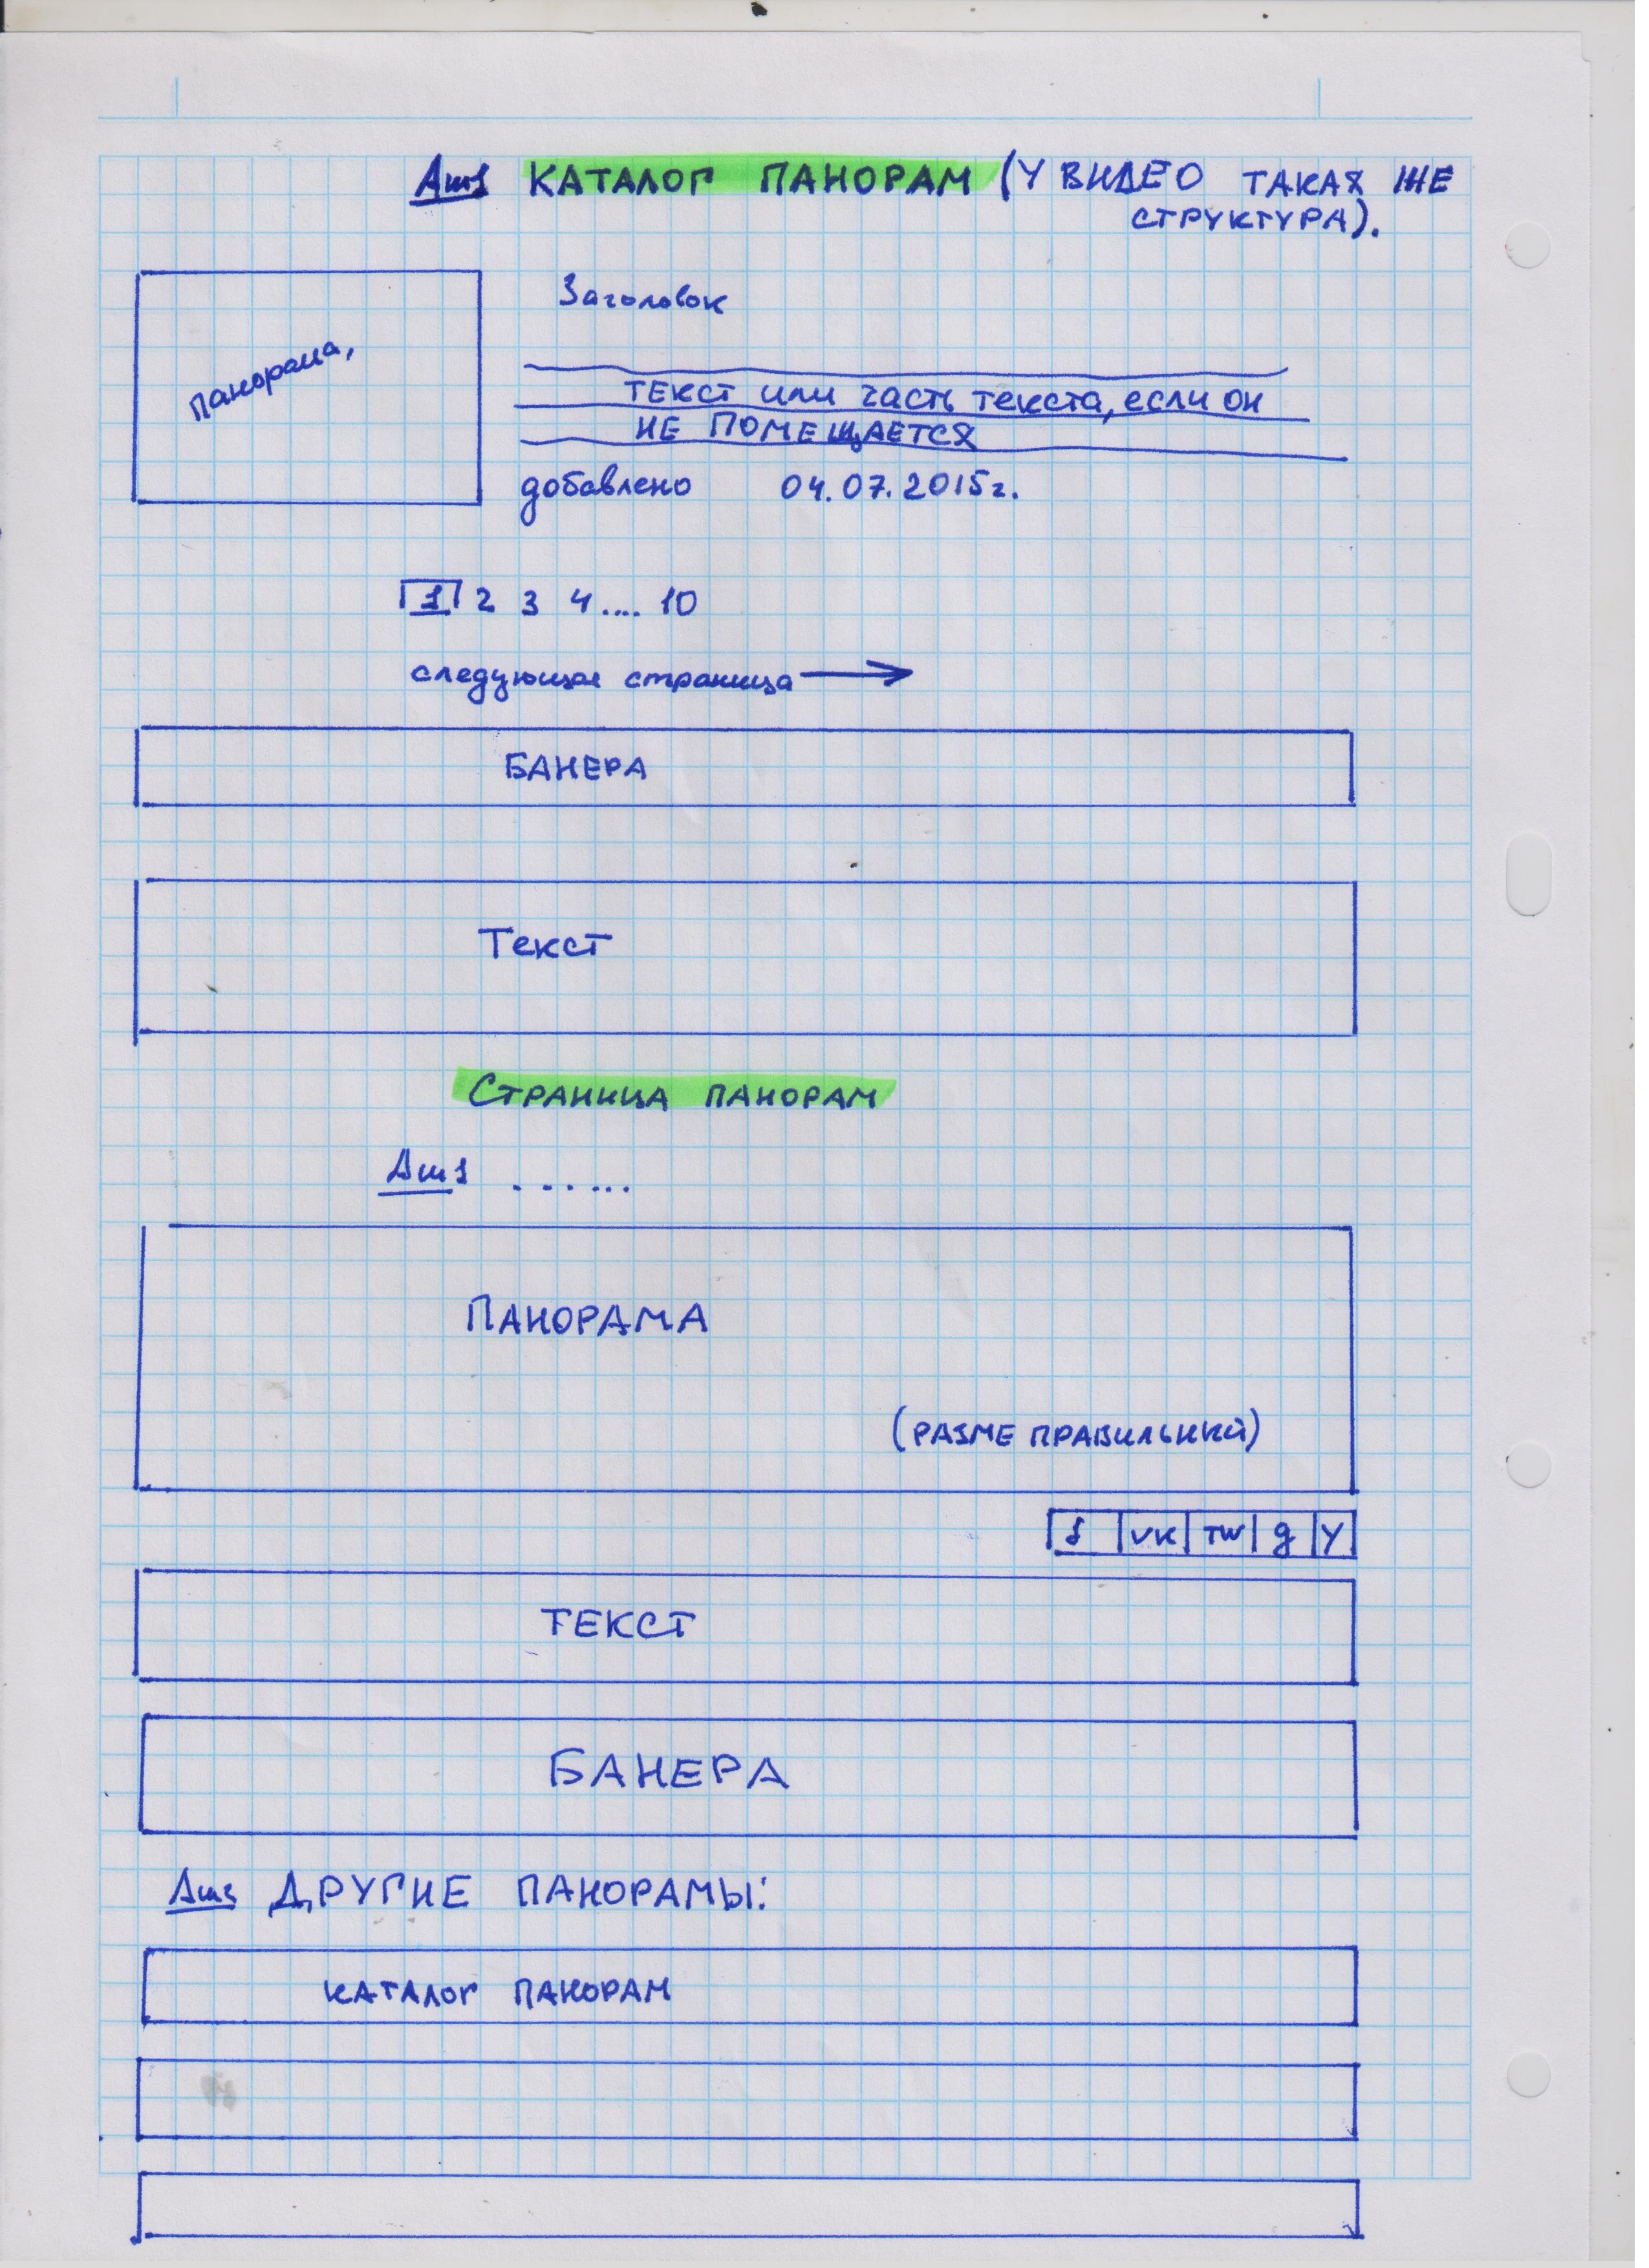 КАТАЛОГ ПАНОРАМ (У ВИДЕО ТАКАЯ ЖЕ
СТРУКТУРА).
Заголовок
Панорама,
ТЕКСТ или часть текста, если он
НЕ ПОМЕЩАЕТСЯ
добавлено 04.07.2015г.
1 2 3 4.... 10
следующая страница →
БАНЕРА
Текст
СТРАНИЦА ПАНОРАМ
......
ПАНОРАМА
(РАЗМЕ ПРАВИЛЬНЫЙ)
f VK TW g Y
ТЕКСТ
БАНЕРА
ДРУГИЕ ПАНОРАМЫ:
КАТАЛОГ ПАНОРАМ